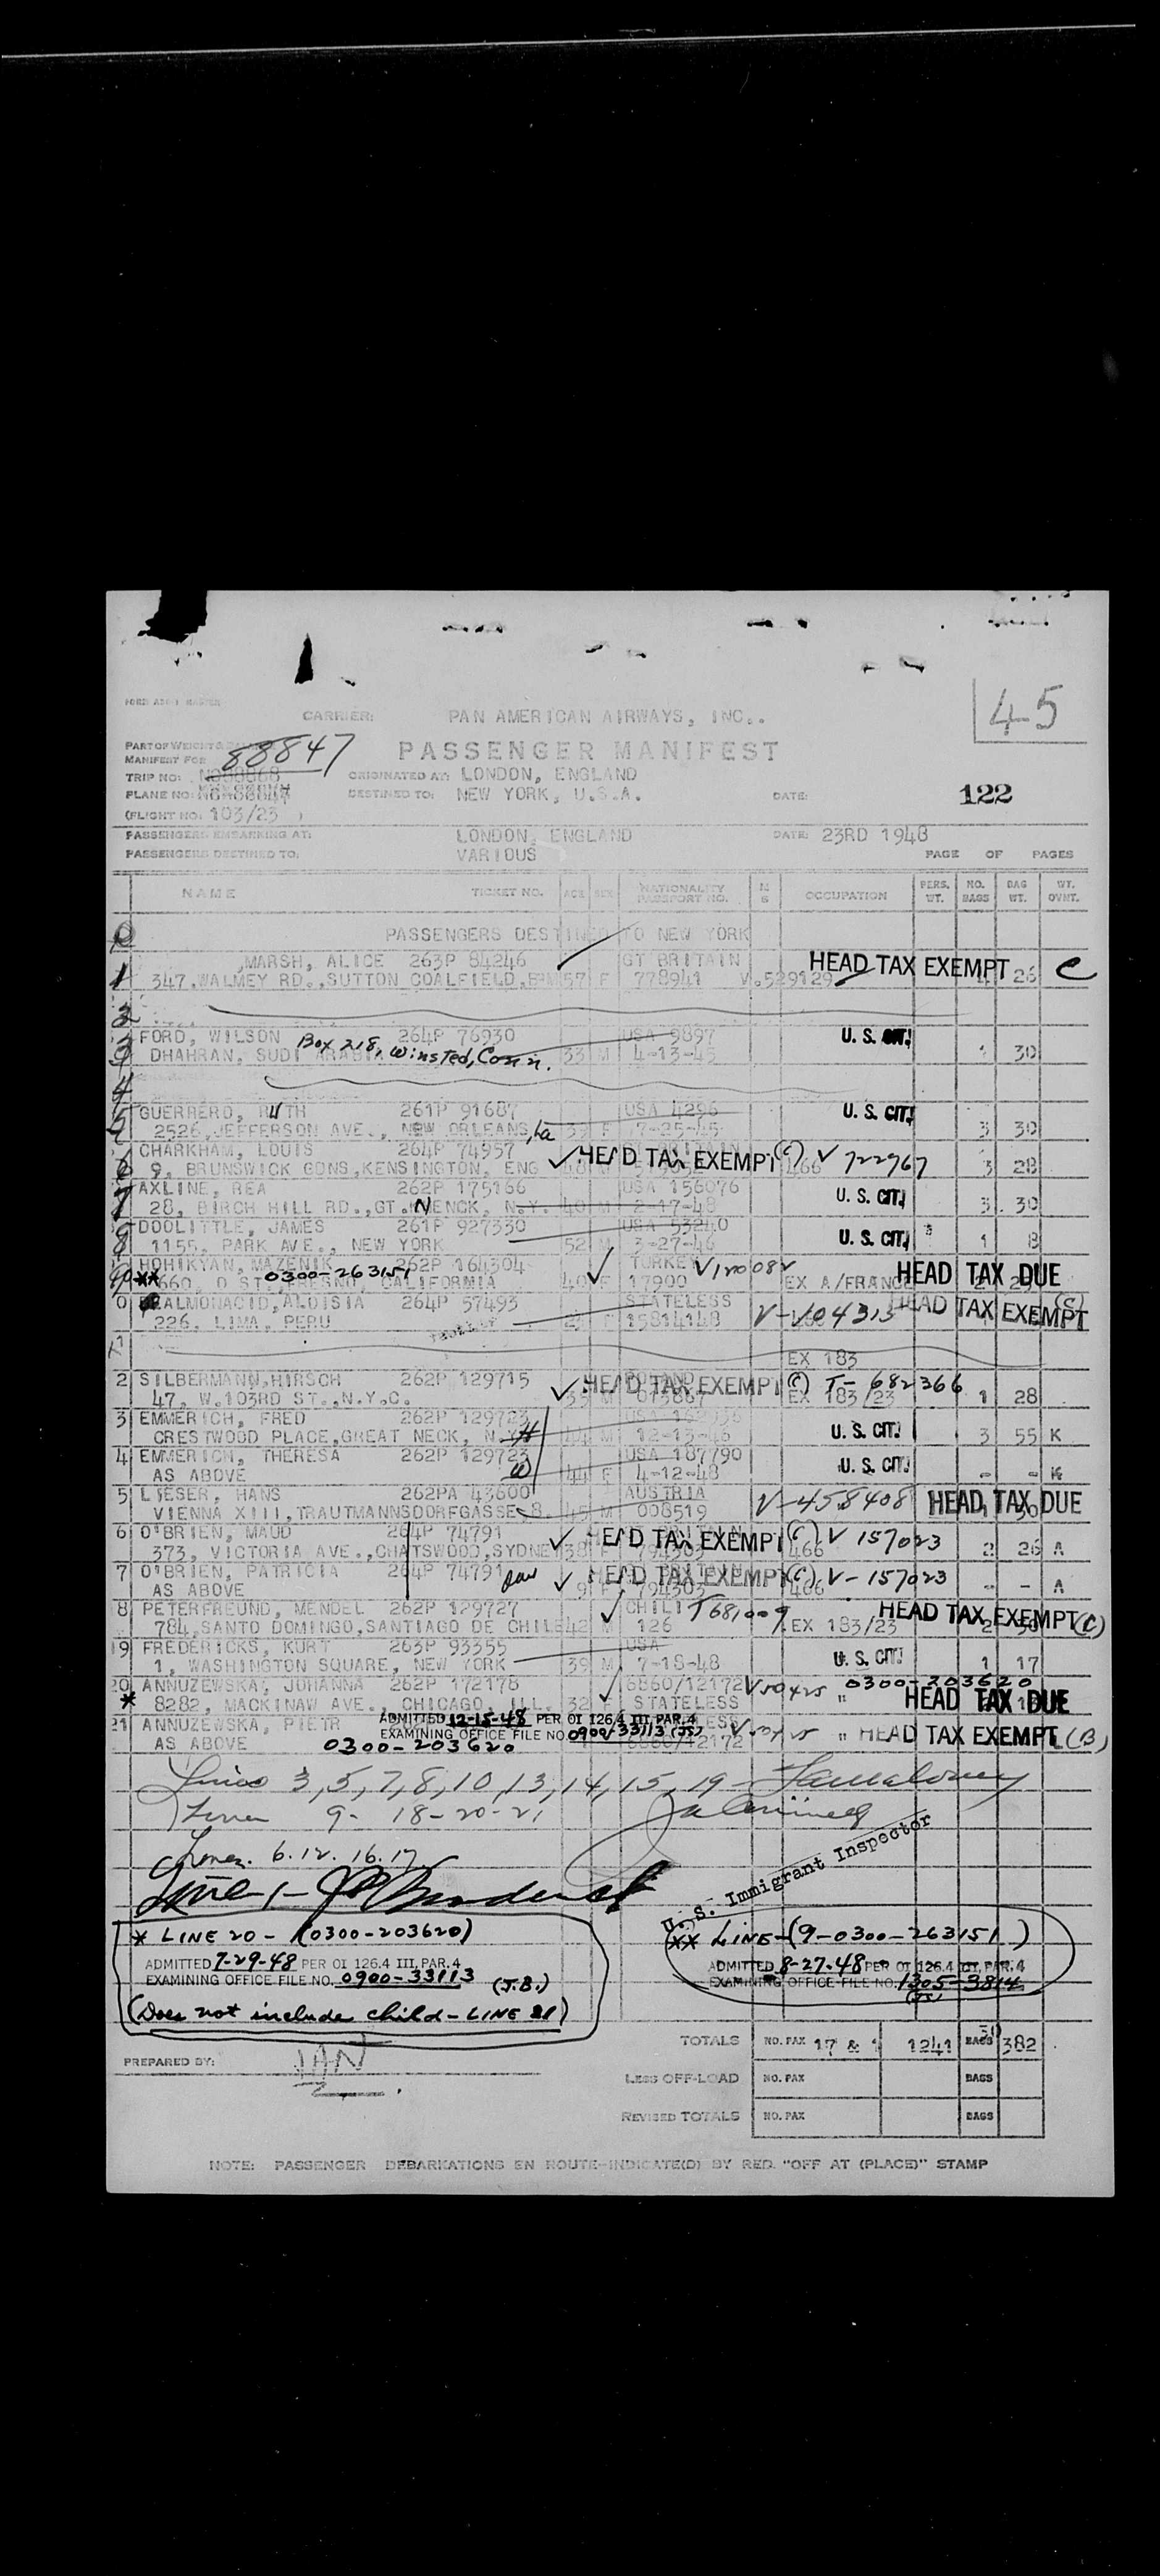 45
CARRIER: PAN AMERICAN AIRWAYS, INC..
PASSENGER MANIFEST
PART OF WEIGHT &
MANIFEST FOR
88847
TRIP NO:
ORIGINATED AT: LONDON, ENGLAND
PLANE NO:
DESTINED TO: NEW YORK, U.S.A. DATE: 122
(FLIGHT NO: 103/23 )
PASSENGERS EMBARKING AT: LONDON, ENGLAND DATE: 23RD 1948
PASSENGERS DESTINED TO: VARIOUS PAGE OF PAGES
NAME TICKET NO. AGE SEX NATIONALITY PASSPORT NO. M S OCCUPATION PERS. WT. NO. BAGS BAG WT. WT. OVHT.
PASSENGERS DESTINED TO NEW YORK
1 MARSH, ALICE 263P 84246 GT BRITAIN HEAD TAX EXEMPT C
347,WALMEY RD.,SUTTON COALFIELD, 57 F 778941 V.529129 26
2
3 FORD, WILSON 264P 76930 USA 9897 U. S. CIT.
DHAHRAN, SUDI ARABI Box 218, Winsted, Conn. 33 M 4-13-45 1 30
4
5 GUERRERO, RUTH 261P 91687 USA 4296 U. S. CIT.
2526,JEFFERSON AVE., NEW ORLEANS, La 39 F 7-25-45 3 30
6 CHARKHAM, LOUIS 264P 74957 HEAD TAX EXEMPT (C) V 722967
9, BRUNSWICK GDNS,KENSINGTON, ENG 466 3 28
7 AXLINE, REA 262P 175166 USA 156076 U. S. CIT.
28, BIRCH HILL RD.,GT. NENCK, N.Y. 40 M 2-17-48 3 30
8 DOOLITTLE, JAMES 261P 927330 USA 53240 U. S. CIT.
1155, PARK AVE., NEW YORK 52 M 3-27-46 1 8
9 HOHIKYAN, MAZENIK 262P 164304 TURKEY HEAD TAX DUE
** 660, O ST., FRESNO, CALIFORNIA 0300-263151 40 F 17900 EX A/FRANCE
0 ALMONACID,ALOISIA 264P 57493 STATELESS HEAD TAX EXEMPT
226, LIMA, PERU 15814148
EX 183
2 SILBERMANN,HIRSCH 262P 129715 HEAD TAX EXEMPT (C) T-682366
47, W.103RD ST.,N.Y.C. EX 183/23 1 28
3 EMMERICH, FRED 262P 129723 U. S. CIT.
CRESTWOOD PLACE,GREAT NECK, N.Y. H 44 M 12-13-46 3 55 K
4 EMMERICH, THERESA 262P 129723 USA 187790 U. S. CIT.
AS ABOVE W 44 F 4-12-48 - - K
5 LIESER, HANS 262PA 43600 AUSTRIA V-458408 HEAD TAX DUE
VIENNA XIII,TRAUTMANNSDORFGASSE 8. 45 M 008519
6 O'BRIEN, MAUD 264P 74791 HEAD TAX EXEMPT (C) V 157023
373, VICTORIA AVE.,CHATSWOOD,SYDNEY 38 F 794303 466 2 26 A
7 O'BRIEN, PATRICIA 264P 74791 dau HEAD TAX EXEMPT (C) V-157023
AS ABOVE 9 F 794303 466 - - A
8 PETERFREUND, MENDEL 262P 129727 CHILI T681009 HEAD TAX EXEMPT (C)
784,SANTO DOMINGO,SANTIAGO DE CHILE 42 M 126 EX 183/23 2
19 FREDERICKS, KURT 263P 93355 USA U. S. CIT.
1, WASHINGTON SQUARE, NEW YORK 39 M 7-18-48 1 17
20 ANNUZEWSKA, JOHANNA 262P 172178 6860/12172 0300-203620
* 8282, MACKINAW AVE., CHICAGO, ILL. 32 F STATELESS " HEAD TAX DUE
21 ANNUZEWSKA, PIETR ADMITTED 12-15-48 PER OI 126.4 III, PAR. 4
EXAMINING OFFICE FILE NO. 0900/33113 (JS) " HEAD TAX EXEMPT (B)
AS ABOVE 0300-203620 6860/12172
Lines 3, 5, 7, 8, 10, 13, 14, 15, 19 -
Lines 9- 18-20-21
Lines. 6. 12. 16. 17
Line 1-
U. S. Immigrant Inspector
* LINE 20 - (0300-203620)
ADMITTED 7-29-48 PER OI 126.4 III, PAR. 4
EXAMINING OFFICE FILE NO. 0900-33113 (J.B.)
(Does not include child - LINE 21)
** LINE-(9-0300-263151)
ADMITTED 8-27-48 PER OI 126.4 III, PAR. 4
EXAMINING OFFICE FILE NO. 1305-3814
(JS)
TOTALS NO. PAX 17 & 1 1241 BAGS 382
PREPARED BY:
LESS OFF-LOAD NO. PAX BAGS
REVISED TOTALS NO. PAX BAGS
NOTE: PASSENGER DEBARKATIONS EN ROUTE-INDICATE(D) BY RED "OFF AT (PLACE)" STAMP